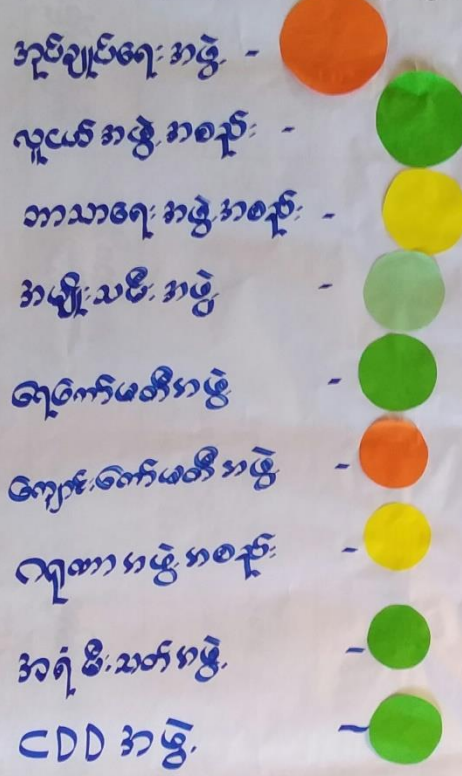 အုပ်ချုပ်ရေးအဖွဲ့ -
လူငယ်အဖွဲ့အစည်း -
ဘာသာရေးအဖွဲ့အစည်း -
အမျိုးသမီးအဖွဲ့ -
ရေကော်မတီအဖွဲ့ -
ကျောင်းကော်မတီအဖွဲ့ -
ဂရုဏာအဖွဲ့အစည်း -
အရံမီးသတ်အဖွဲ့ -
CDD အဖွဲ့ -